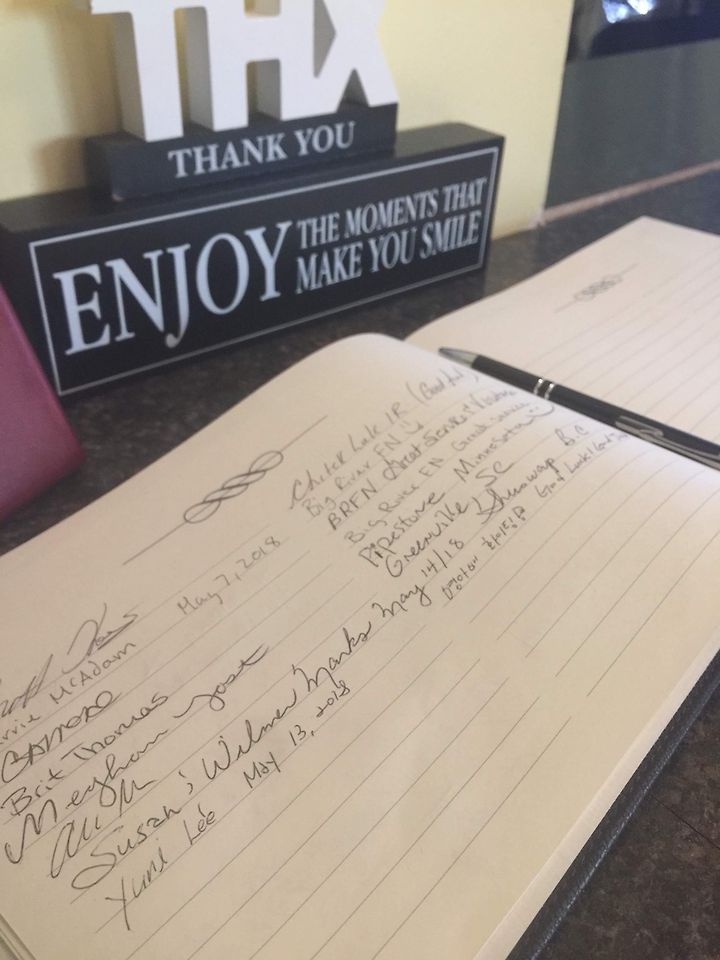 THX
THANK YOU
ENJOY THE MOMENTS THAT
MAKE YOU SMILE
May 7, 2018 (Good
McAdam Big River FN
BRFN Great Service
Brit Thomas Big River FN Great service
Meghan Yost Pipestone Minnesota
Greenville SC
Susan & Wilmer Marks May 14/18 Shuswap B.C
Yuni Lee May 13, 2018 Good Luck!